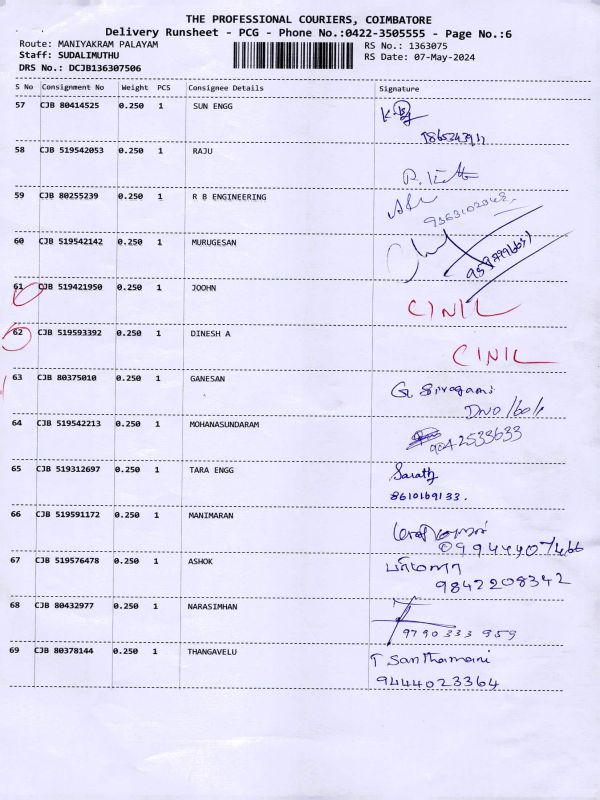 THE PROFESSIONAL COURIERS, COIMBATORE
Delivery Runsheet - PCG - Phone No.:0422-3505555 - Page No.:6
Route: MANIYAKRAM PALAYAM
RS No.: 1363075
Staff: SUDALIMUTHU
RS Date: 07-May-2024
DRS No.: DCJB136307506
S No Consignment No Weight PCS Consignee Details Signature
57 CJB 80414525 0.250 1 SUN ENGG
58 CJB 519542053 0.250 1 RAJU
59 CJB 80255239 0.250 1 R B ENGINEERING
60 CJB 519542142 0.250 1 MURUGESAN
61 CJB 519421950 0.250 1 JOOHN
CINIL
62 CJB 519593392 0.250 1 DINESH A
CINIL
63 CJB 80375010 0.250 1 GANESAN
G. Sivagami
64 CJB 519542213 0.250 1 MOHANASUNDARAM
9042533633
65 CJB 519312697 0.250 1 TARA ENGG Sarath
8610169133.
66 CJB 519591172 0.250 1 MANIMARAN
09944407466
67 CJB 519576478 0.250 1 ASHOK
9842208342
68 CJB 80432977 0.250 1 NARASIMHAN
9790333959
69 CJB 80378144 0.250 1 THANGAVELU T Santhamani
9444023364